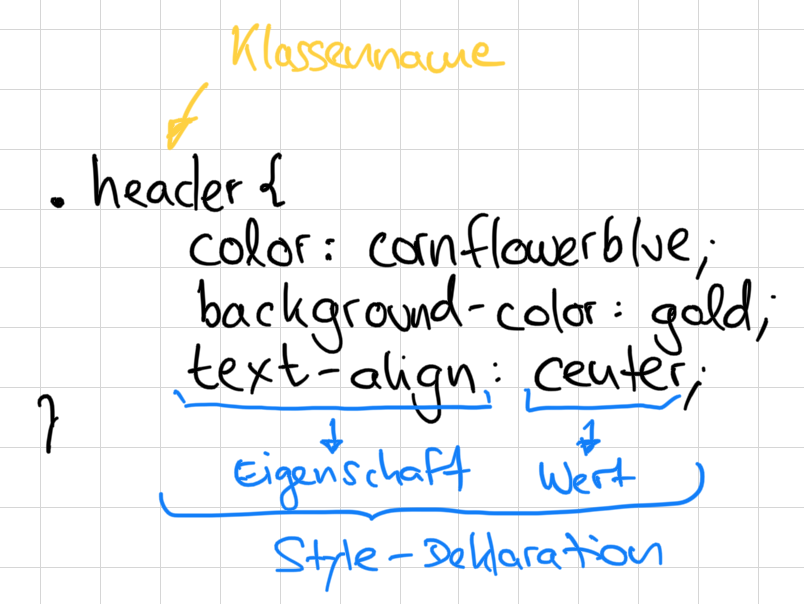 Klassenname
. header {
color: cornflowerblue;
background-color: gold;
text-align: center;
}
Eigenschaft Wert
Style-Deklaration